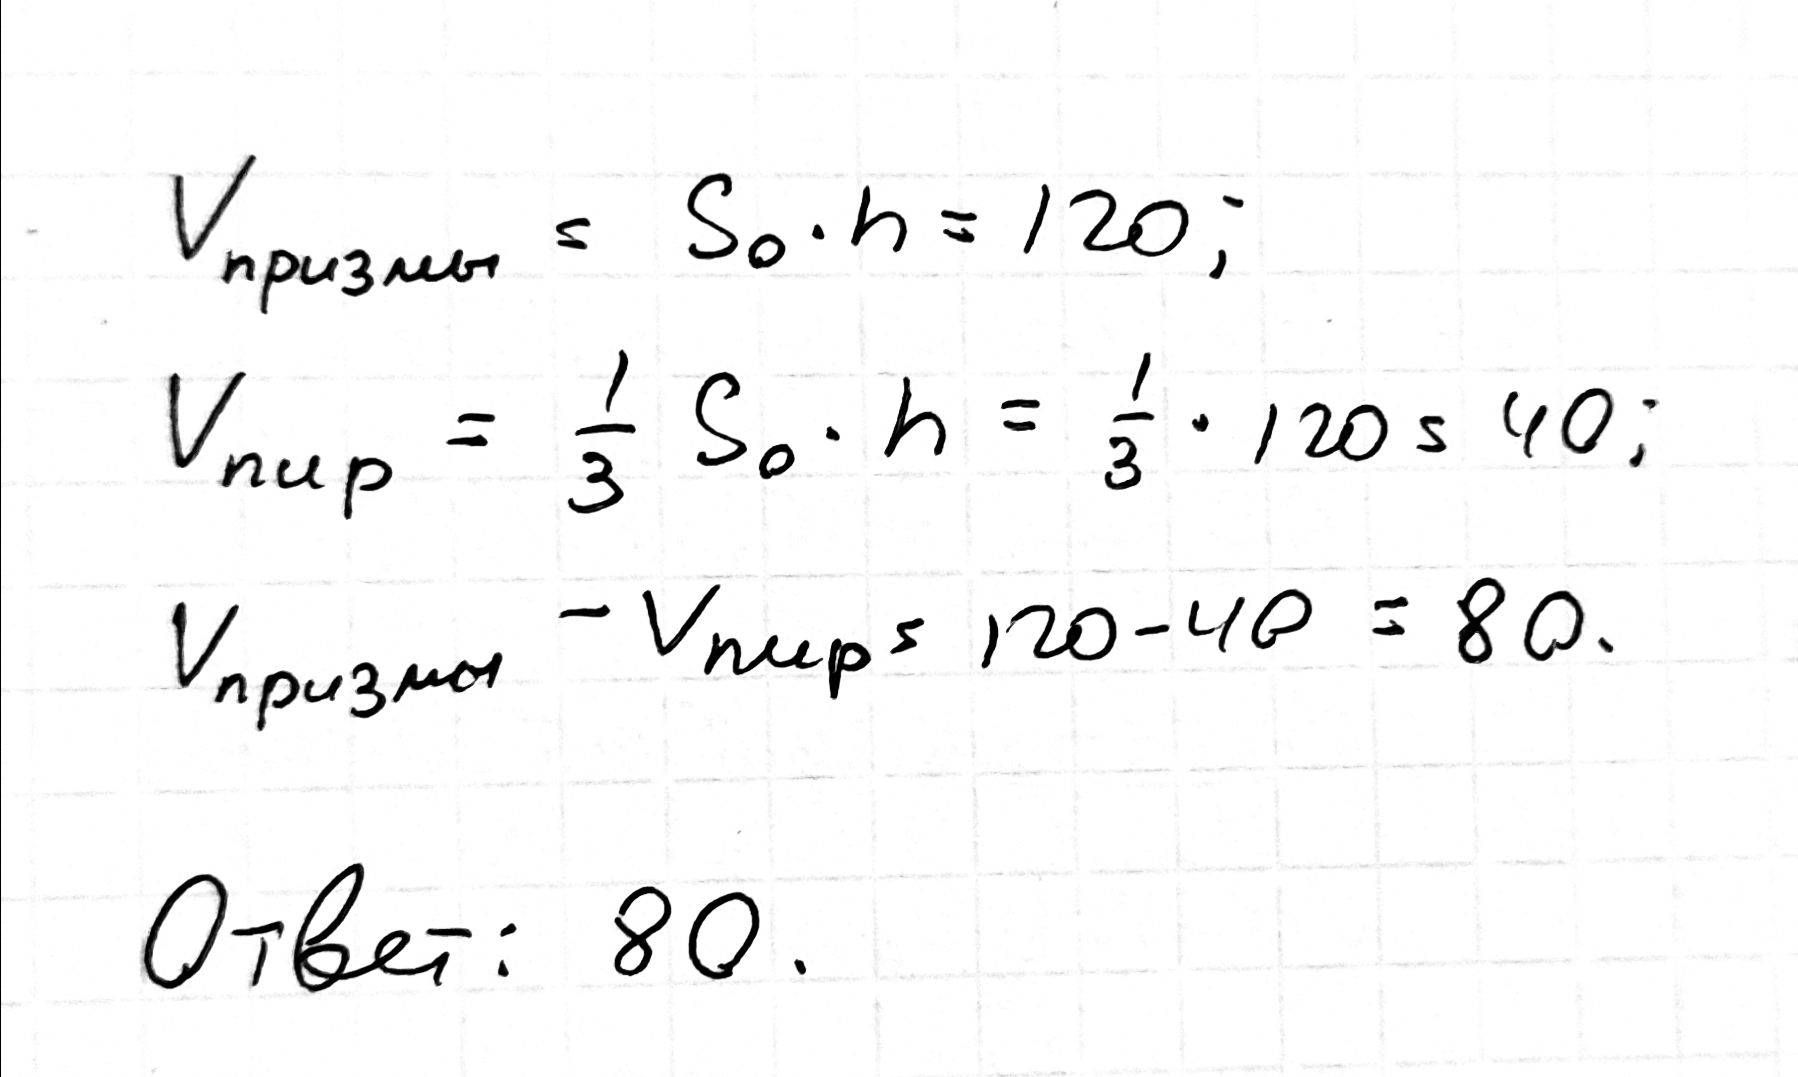 Vпризмы = S₀ · h = 120;
Vпир = 1/3 S₀ · h = 1/3 · 120 = 40;
Vпризмы - Vпир = 120 - 40 = 80.
Ответ: 80.